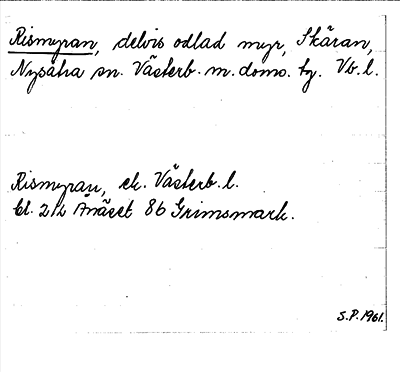 Rismyran, delvis odlad myr, Skäran,
Nysätra sn. Västerb. m. doms. tg. Vb. l.
Rismyran, ek. Västerb. l.
bl. 212 Ånäset 86 Grimsmark.
S.P. 1961.